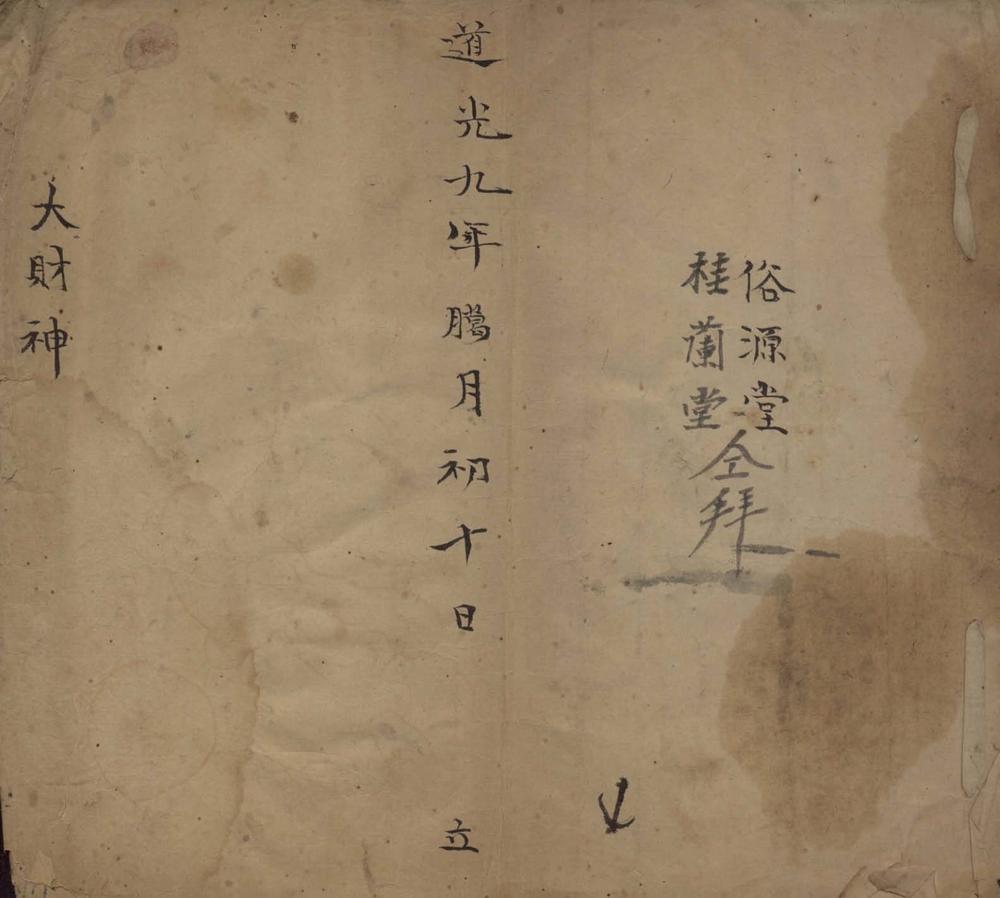 俗源堂
桂蘭堂
仝拜
道光九年臈月初十日 立
大財神